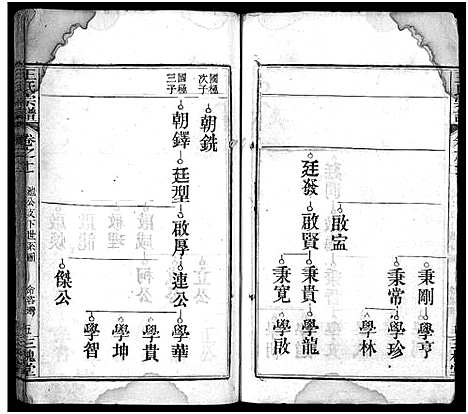 秉剛 學亨
秉常 學珍
學林
啟宝
廷發 啟賢 秉貴 學龍
秉寬 學啟
國極次子
朝銑
國極三子
朝鐸 廷型 啟厚 連公 學華
學貴
學坤
傑公 學智
王氏宗譜
卷之十
公支下世系圖
三槐堂